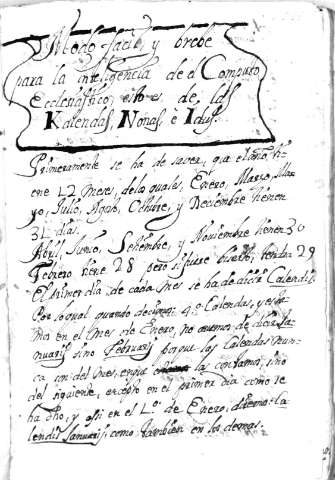 Modo facil, y brebe
para la inteligencia de el Computo
Ecclesiastico, esto es de las
Kalendas, Nonas, e Idus.
Primeramente se ha de saver, q.e el año ti-
ene 12 Meses, de los quales, Enero, Marzo, Ma-
yo, Julio, Agosto, Octubre, y Deciembre tienen
31 dias.
Abril, Junio, Setiembre, y Noviembre tienen 30
Febrero tiene 28 pero si fuese bisiesto, tendra 29
El primer dia de cada Mes se ha de dicir Calendis.
Por lo qual quando decimos 4.º Calendas, y esta-
mos en el Mes de Enero, no avemos de dicir Ja-
nuarij sino Februarij porque las Calendas nun-
ca son del Mes, en que las contamos, sino
del siguiente, excepto en el primer dia como se
ha dho, y assi en el 1.º de Enero, diremos Ka-
lendis Januarij, como tambien en los demas.